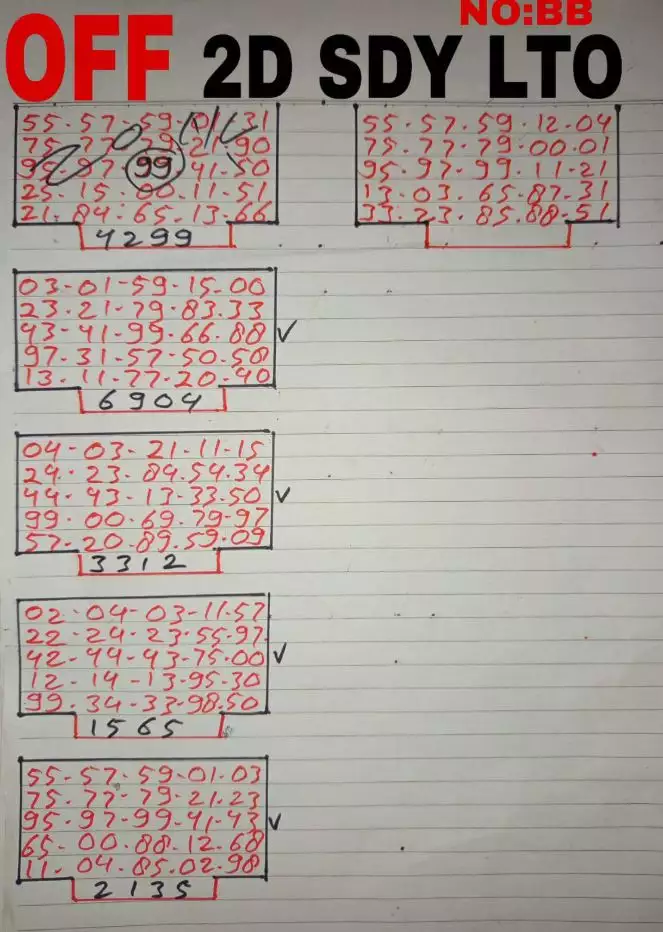 NO:BB
OFF 2D SDY LTO
55-57-59-01-31
75-77-79-21-90
95-97-99-41-50
25-15-00-11-51
21-84-65-13-66
4299
55-57-59-12-04
75-77-79-00-01
95-97-99-11-21
13-03-65-87-31
33-23-85-88-51
03-01-59-15-00
23-21-79-83-33
43-41-99-66-88
97-31-57-50-58
13-11-77-20-40
6904
04-03-21-11-15
24-23-84-54-34
44-43-13-33-50
99-00-69-79-97
57-20-89-59-09
3312
02-04-03-11-57
22-24-23-55-97
42-44-43-75-00
12-14-13-95-30
99-34-33-98-50
1565
55-57-59-01-03
75-77-79-21-23
95-97-99-41-43
65-00-88-12-68
11-04-85-02-98
2135